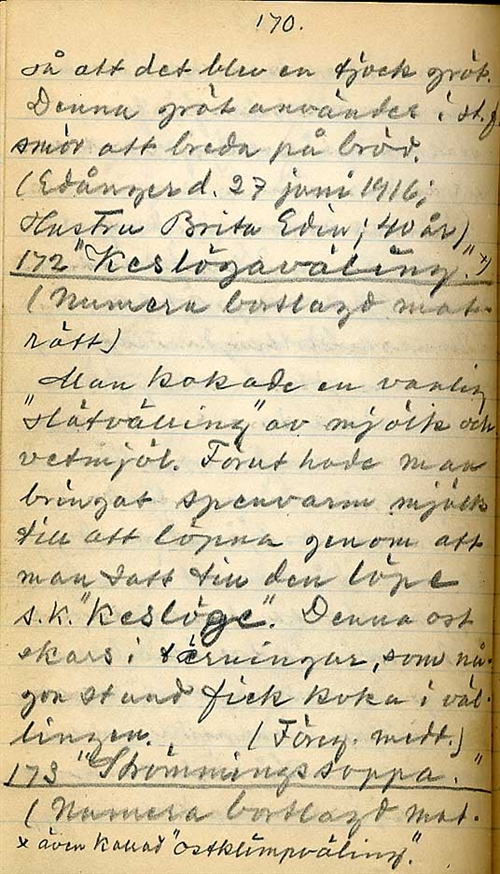 170.
så att det blev en tjock gröt.
Denna gröt användes i st. f.
smör att breda på bröd.
(Edånger d. 27 juni 1916;
Hustru Brita Edin; 40 år)
172 "Keslögaväling." x)
(Numera bortlagd mat-
rätt)
Man kokade en vanlig
"slätvälling" av mjölk och
vetmjöl. Förut hade man
bringat spenvarm mjölk
till att löpna genom att
man satt till den löpe
s.k. "keslöge". Denna ost
skars i tärningar, som nå-
gon stund fick koka i väl-
lingen. (Föreg. medd.)
173 "Strömmingssoppa."
(Numera bortlagd mat-
x även kallad "ostklimpväling".